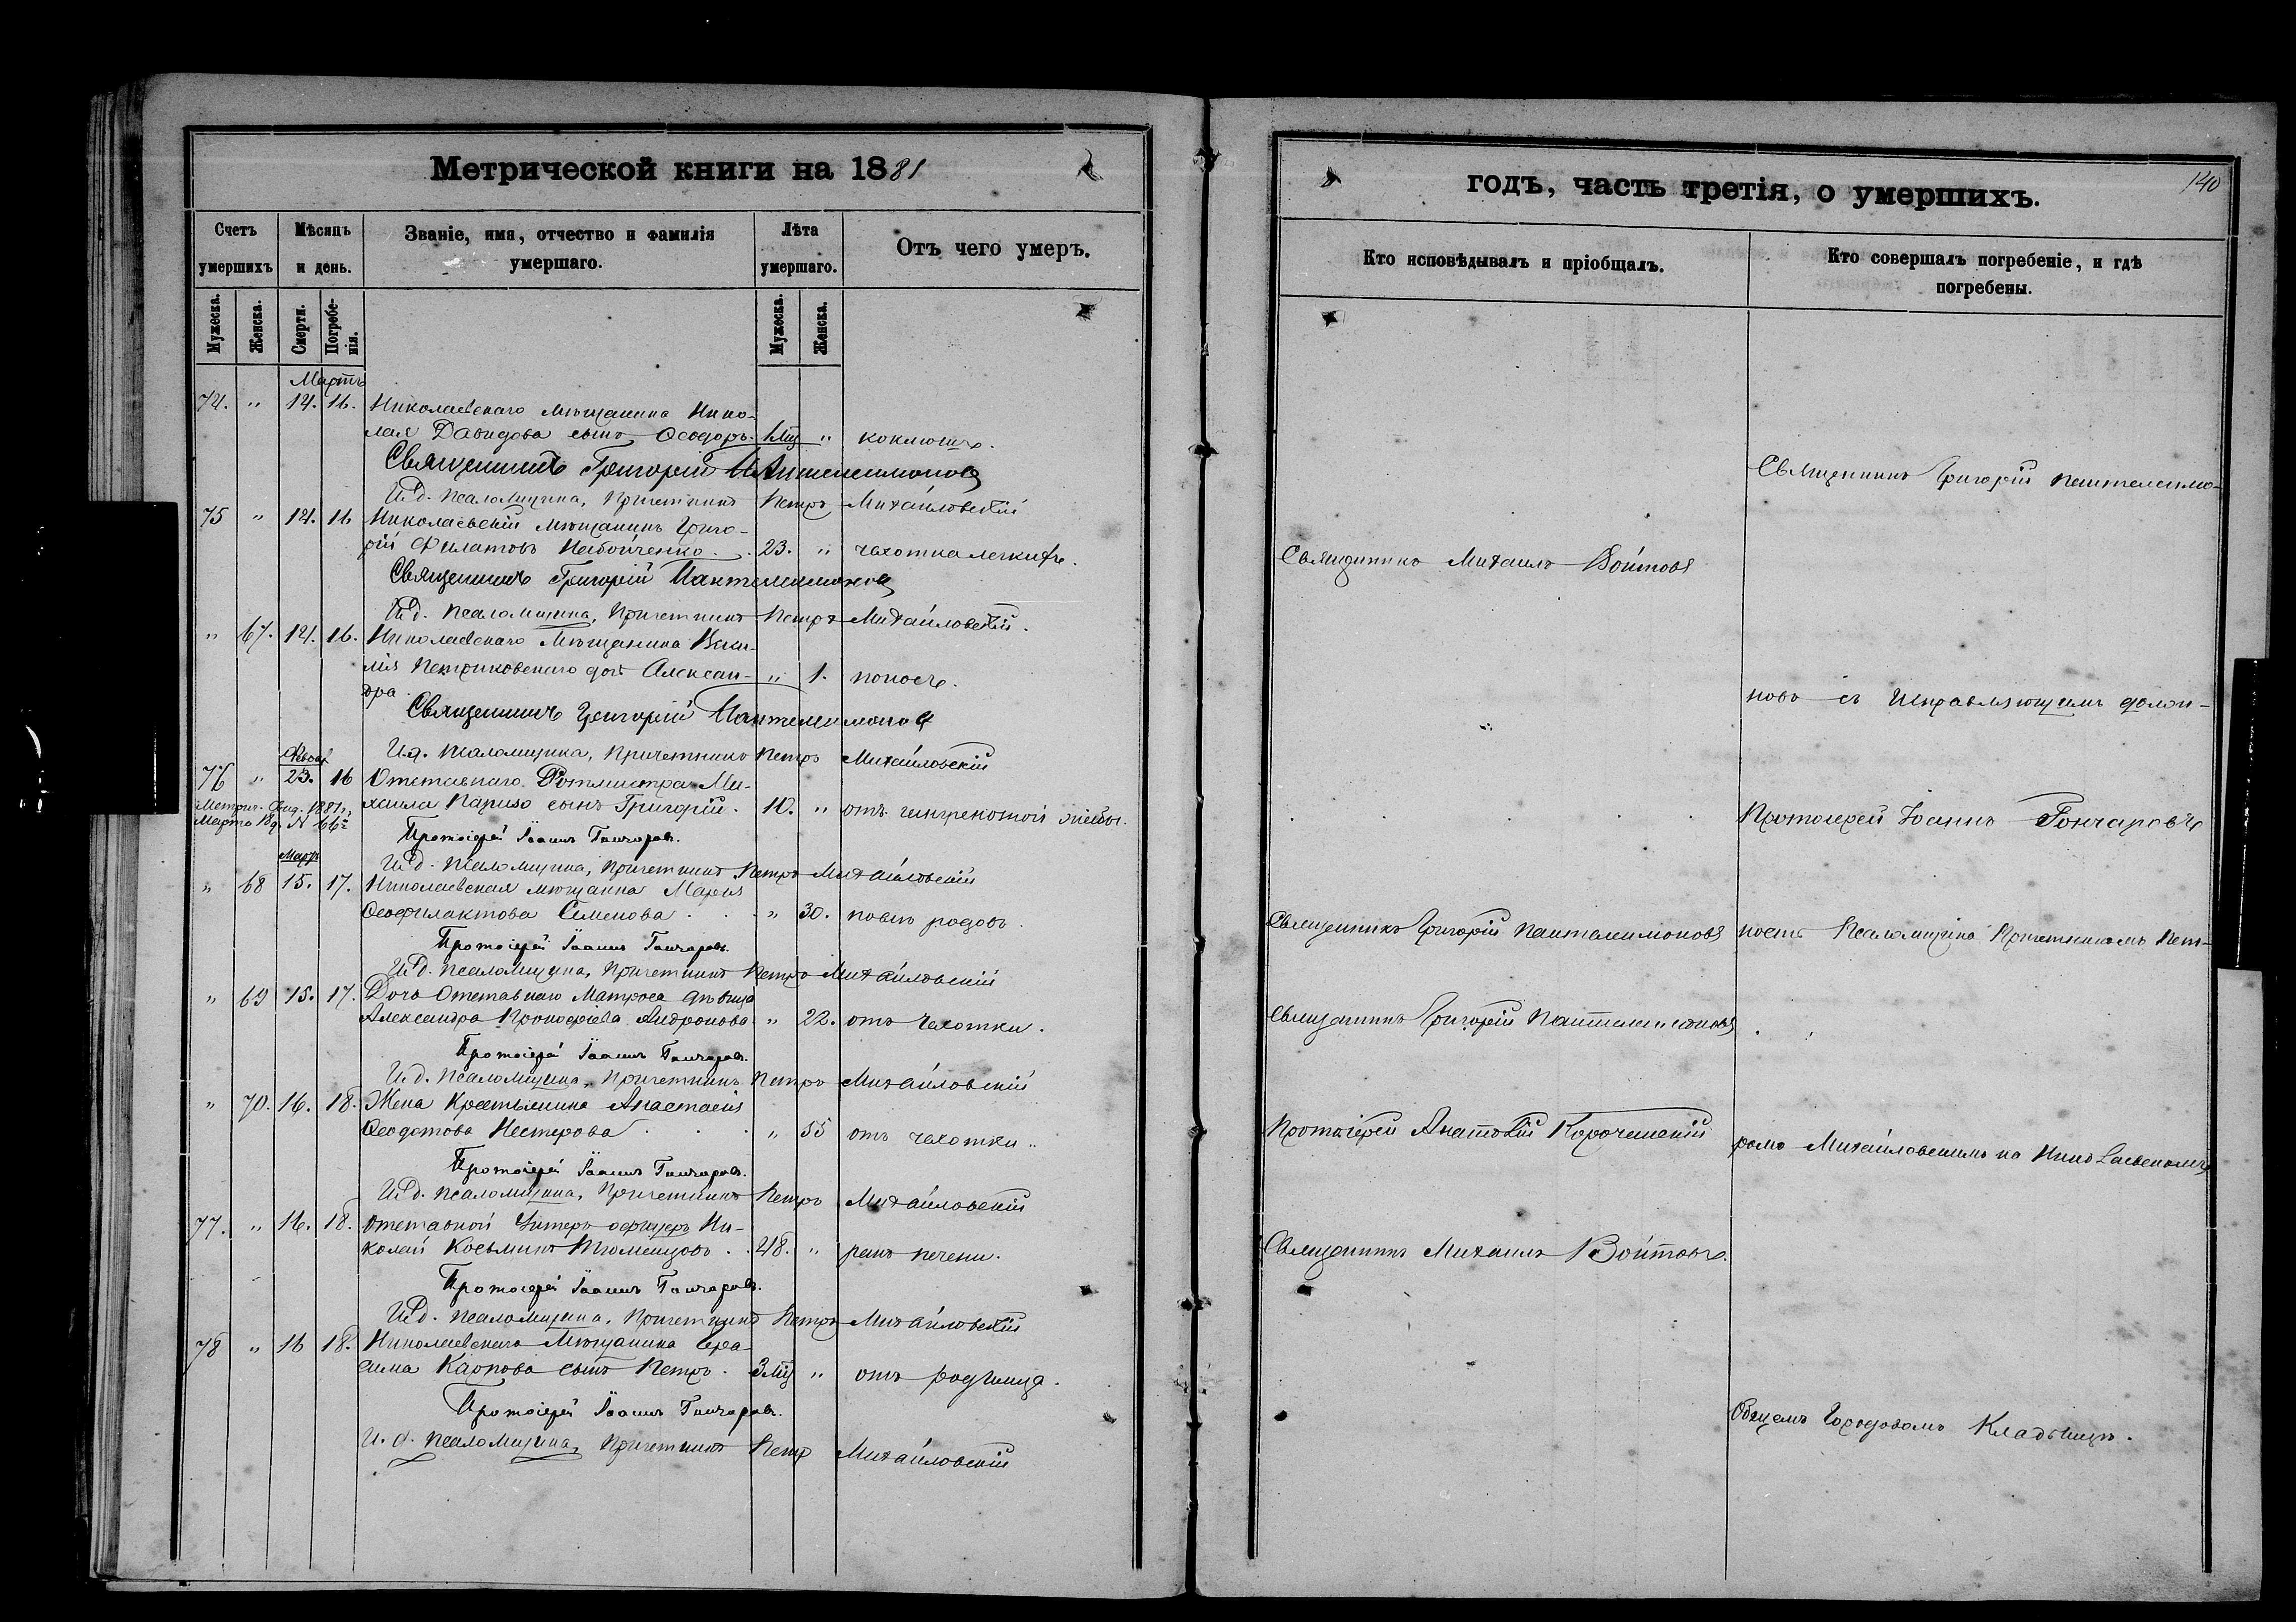 Метрической книги на 1881
годъ, часть третія, о умершихъ.
140
Счетъ умершихъ
Мѣсяцъ и день.
Званіе, имя, отчество и фамилія умершаго.
Лѣта умершаго.
Отъ чего умеръ.
Кто исповѣдывалъ и пріобщалъ.
Кто совершалъ погребеніе, и гдѣ погребены.
Мужеска.
Женска.
Смерти.
Погребенія.
Мужеска.
Женска.
Мартъ
74. " 14. 16. Николаевскаго мѣщанина Нико-
лая Давидова сынъ Ѳеодоръ. " коклюшъ.
Священникъ Григорій Пантелеимоновъ
И.д. псаломщика, Причетникъ Петръ Михайловскій
75 " 14. 16 Николаевскій мѣщанинъ Григо-
рій Филатовъ 23. " чахотка легкихъ.
Священникъ Григорій Пантелеимоновъ
И.д. псаломщика, Причетникъ Петръ Михайловскій.
" 67. 14. 16. Николаевскаго Мѣщанина
Петриковскаго дочь Алексан- " 1. поносъ.
дра.
Священникъ Григорій Пантелеимоновъ
И.д. псаломщика, Причетникъ Петръ Михайловскій
Февр.
76 " 23. 16 Отставнаго Ротмистра Ми-
хаила сынъ Григорій. 10. " отъ
Метрич. 1881 г.
Марта
Протоіерей Іоаннъ Гончаровъ.
Март.
И.д. псаломщика, Причетникъ Петръ Михайловскій
" 68 15. 17. Николаевская мѣщанка Марія
Ѳеофилактова Семенова " 30. родовъ.
Протоіерей Іоаннъ Гончаровъ.
И.д. псаломщика, Причетникъ Петръ Михайловскій
" 69 15. 17. Дочь Отставнаго Матроса дѣвица
Александра Прокофіева Андронова. " 22. отъ чахотки.
Протоіерей Іоаннъ Гончаровъ.
И.д. псаломщика, Причетникъ Петръ Михайловскій
" 70. 16. 18. Жена Крестьянина Анастасія
Ѳеодотова Нестерова " 55 отъ чахотки.
Протоіерей Іоаннъ Гончаровъ.
И.д. псаломщика, Причетникъ Петръ Михайловскій
77. " 16. 18. Отставной Унтеръ-офицеръ Ни-
колай Косьминъ 48. " ракъ печени.
Протоіерей Іоаннъ Гончаровъ.
И.д. псаломщика, Причетникъ Петръ Михайловскій
78 " 16 18. Николаевскаго Мѣщанина Гера-
сима Карпова сынъ Петръ. " отъ родимца.
Протоіерей Іоаннъ Гончаровъ.
И.д. псаломщика, Причетникъ Петръ Михайловскій
Священникъ Михаилъ Войтовъ
Священникъ Григорій Пантелеимоновъ
Священникъ Григорій Пантелеимоновъ
Протоіерей Анатолій
Священникъ Михаилъ Войтовъ.
Священникъ Григорій Пантелеимо-
новъ съ Исправляющимъ долж-
Протоіерей Іоаннъ Гончаровъ
ность Псаломщика Причетникомъ Пет-
ромъ Михайловскимъ на Николаевскомъ
Общемъ Городовомъ Кладбищѣ.